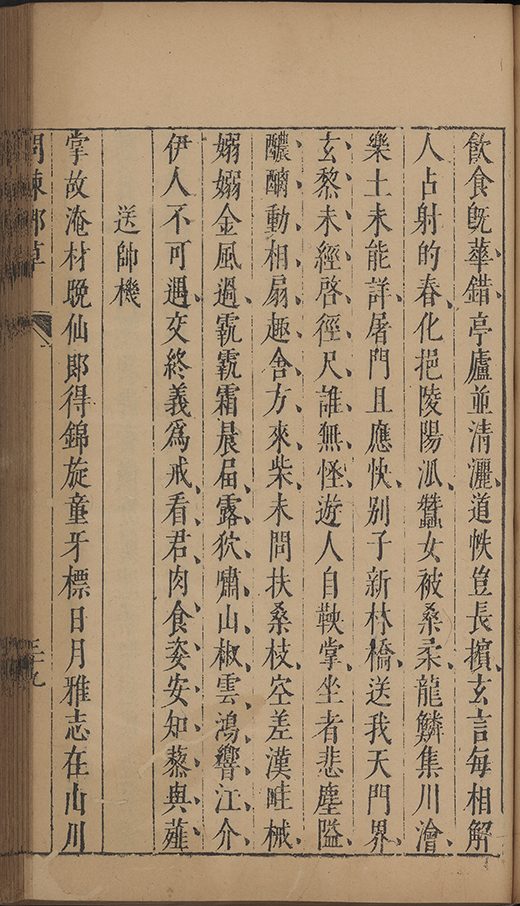 飲食既華錯亭廬並清灑道帙豈長擯玄言每相解
人占射的春化挹陵陽泒蠶女被桑柔龍鱗集川澮
樂土未能詳屠門且應快別子新林橋送我天門界
玄黎未經啓徑尺誰無怪遊人自鞅掌坐者悲塵隘
醲酺動相扇趣舍方來柴未問扶桑枝空差漢畦械
嫋嫋金風過霐霐霜晨屆露狖嘯山椒雲鴻響江介
伊人不可遇交終義爲戒看君肉食姿安知藜與薤
送帥機
掌故淹材晚仙郎得錦旋童牙標日月雅志在山川
問棘郵草
三十九